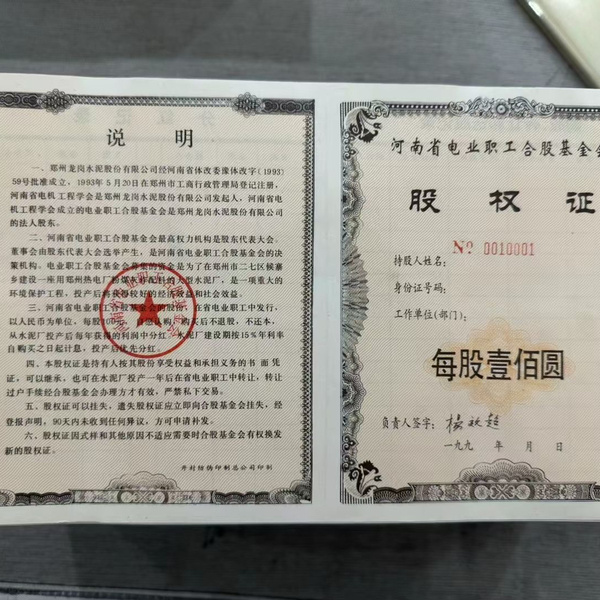 说 明
一、郑州龙岗水泥股份有限公司经河南省体改委豫体改字(1993)
59号批准成立，1993年5月20日在郑州市工商行政管理局登记注册，
河南省电机工程学会是郑州龙岗水泥股份有限公司发起人，河南省电
机工程学会成立的电业职工合股基金会是郑州龙岗水泥股份有限公司
的法人股东。
二、河南省电业职工合股基金会最高权力机构是股东代表大会。
董事会由股东代表大会选举产生，是河南省电业职工合股基金会的决
策机构。电业职工合股基金会募集的资金是为了在郑州市二七区候寨
乡建设一座用郑州热电厂粉煤灰配料的大型水泥厂，是一项重大的
环境保护工程，投产后将获得较好的经济效益和社会效益。
三、河南省电业职工合股基金会股份，在省电业职工中发行，
以人民币为单位，每股100元，自愿认购，购买后不退股，不还本，
从水泥厂投产后每年获得的利润中分红，水泥厂建设期按15%年利率
自购买之日起计息，投产后优先分红。
四、本股权证是持有人按其股份享受权益和承担义务的书面凭
证，可以继承，也可在水泥厂投产一年后在省电业职工中转让，转让
过户手续经合股基金会办理方才有效，严禁私下交易。
五、股权证可以挂失，遗失股权证应立即向合股基金会挂失，经
登报声明，90天内未收到任何异议，方可申请补发。
六、股权证因式样和其他原因不适应需要时合股基金会有权换发
新的股权证。
开封防伪印制总公司印制
河南省电业职工合股基金会
股 权 证
№ 0010001
持股人姓名：
身份证号码：
工作单位(部门)：
每股壹佰圆
负责人签字：
一九九 年 月 日